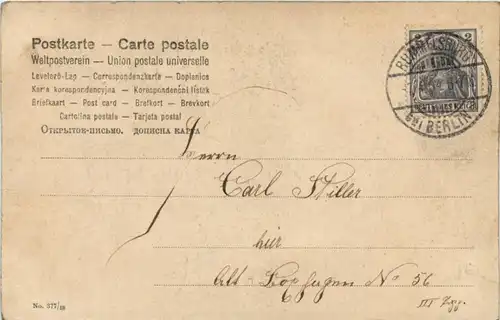 Postkarte — Carte postale
Weltpostverein — Union postale universelle
Levelező-Lap — Correspondenzkarte — Dopisnice
Karta korespondencyjna — Korespondenční lístek
Briefkaart — Post card — Brefkort — Brevkort
Cartolina postale — Tarjeta postal
Открытое-письмо. дописна карта
RUMMELSBURG
bei BERLIN
Herrn
Carl Stiller
hier
Alt Boxhagen No 56
III
No. 377/